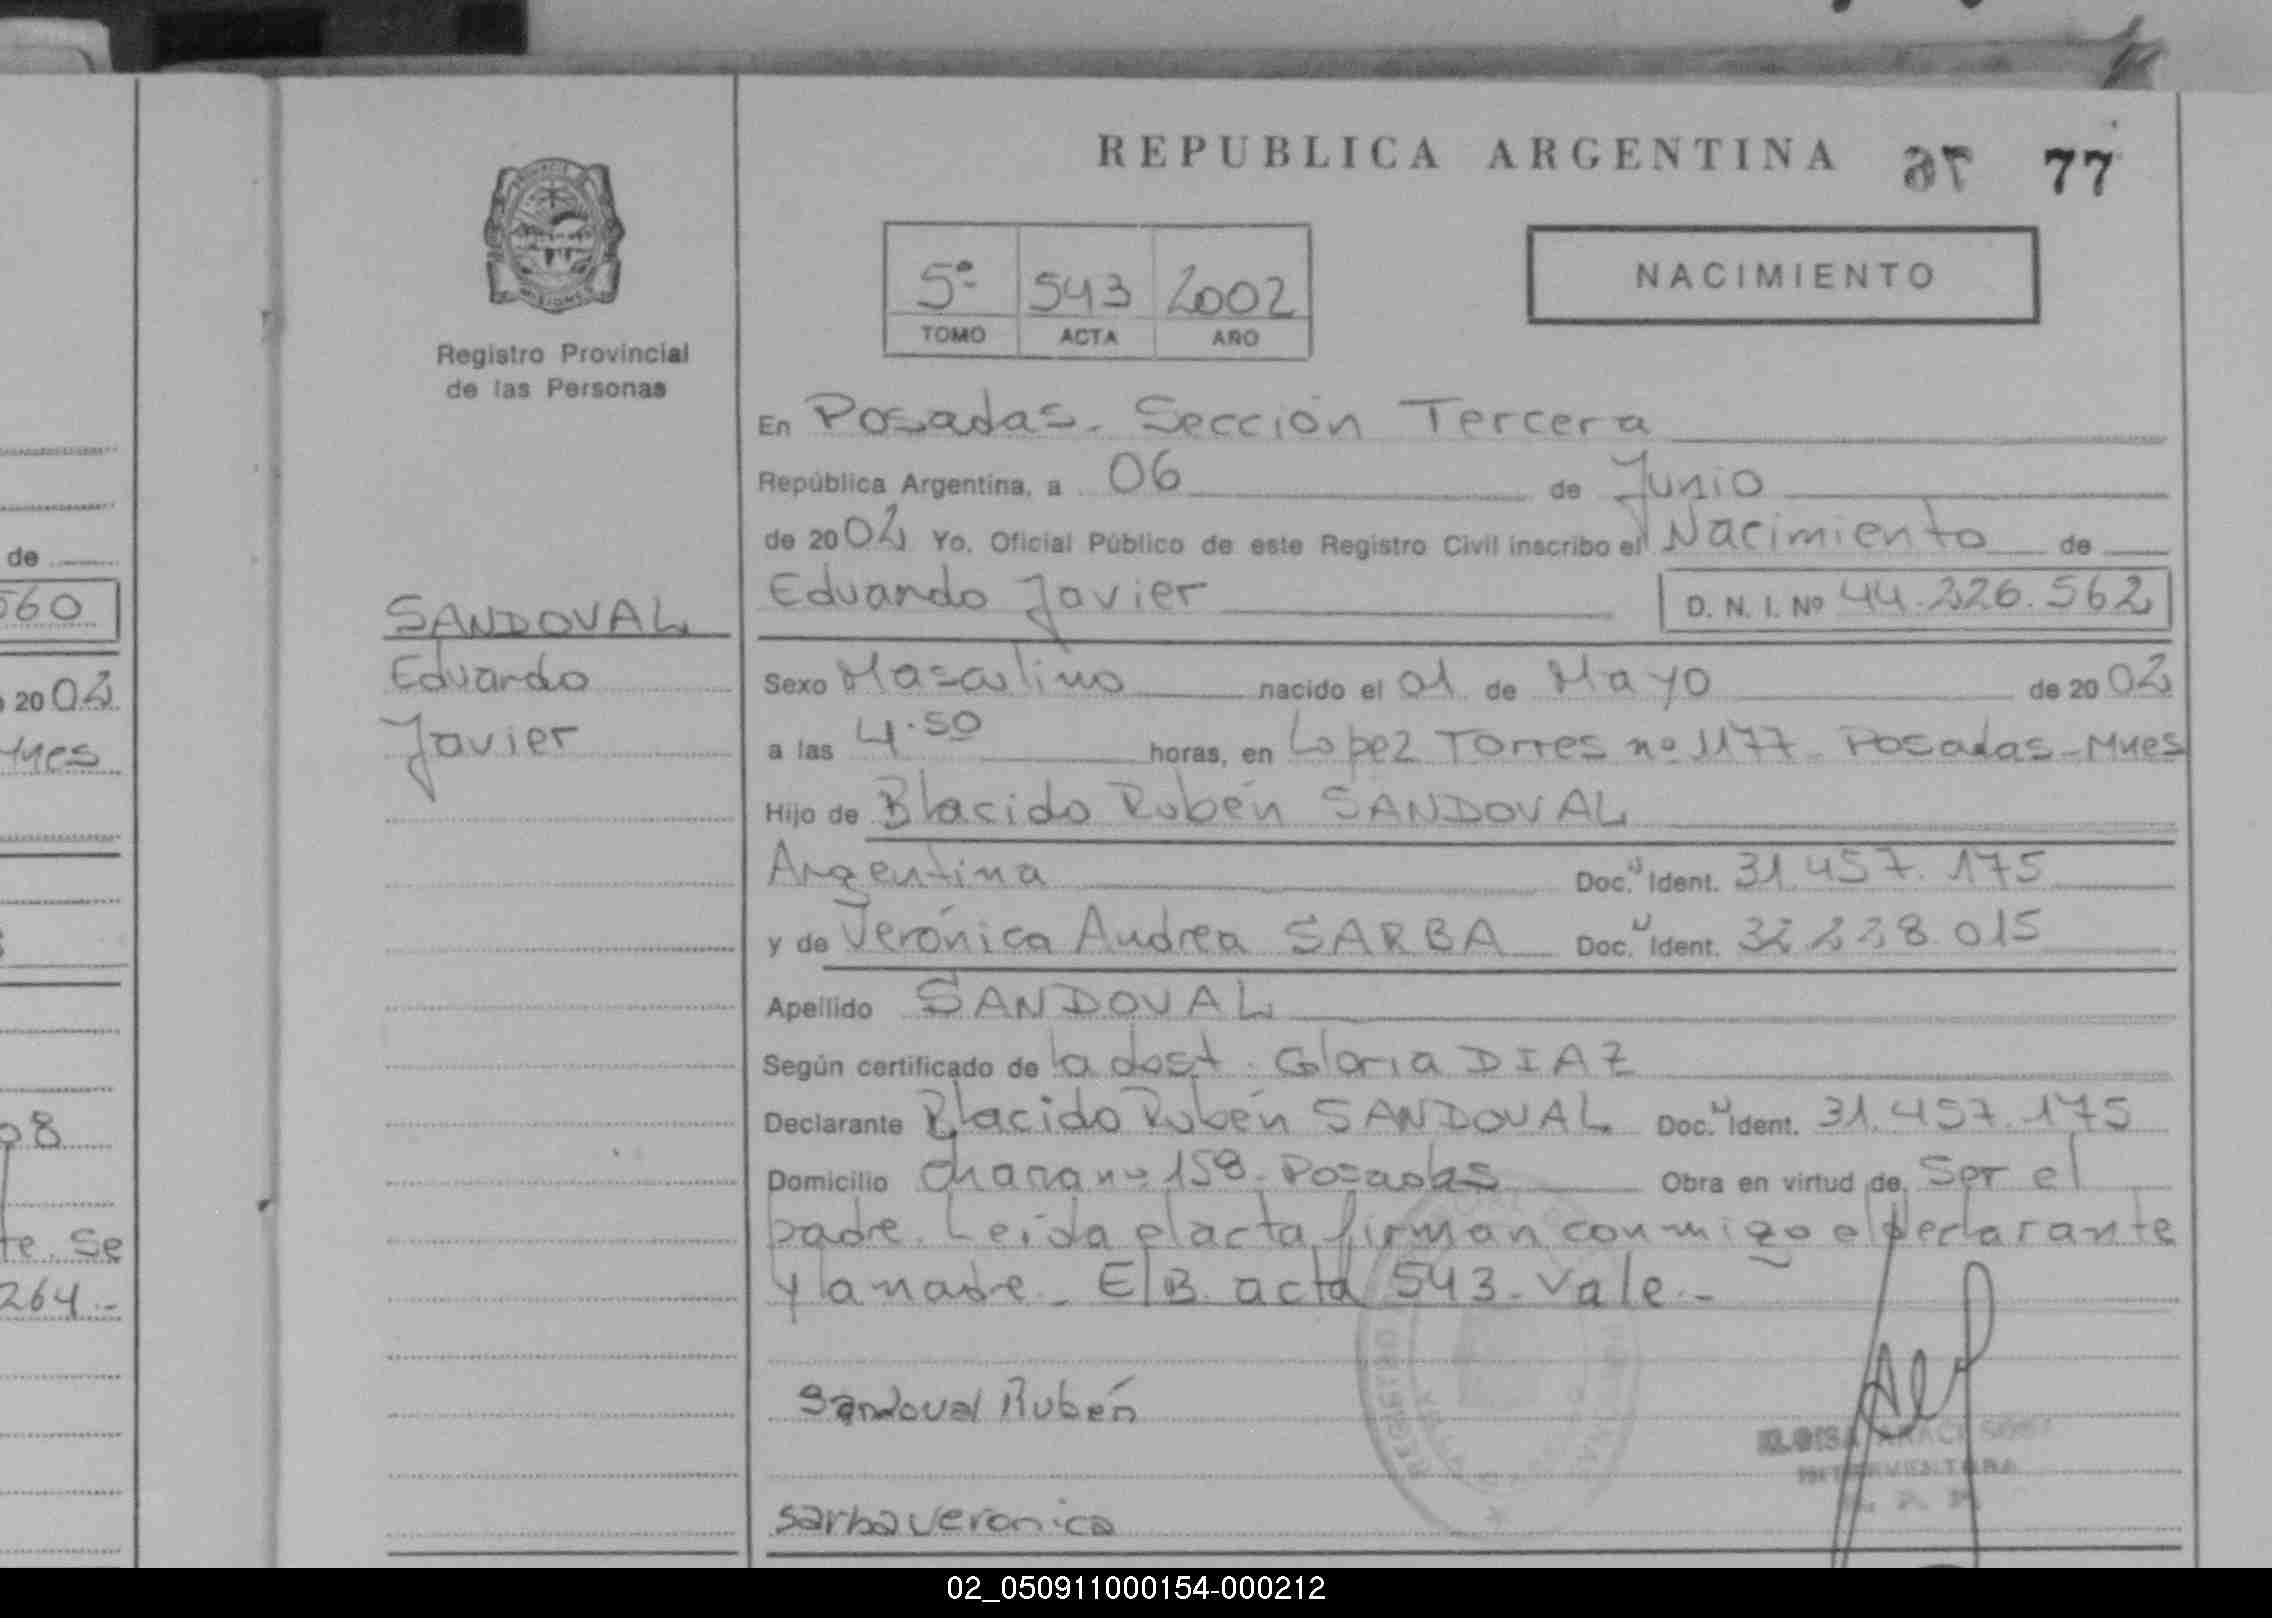 REPUBLICA ARGENTINA 76 77
5º 543 2002
TOMO ACTA AÑO
NACIMIENTO
Registro Provincial
de las Personas
MISIONES
En Posadas - Sección Tercera
República Argentina, a 06 de Junio
de 2002 Yo, Oficial Público de este Registro Civil inscribo el Nacimiento de
Eduardo Javier D. N. I. Nº 44.226.562
SANDOVAL
Eduardo
Javier
Sexo Masculino nacido el 01 de Mayo de 2002
a las 4.50 horas, en Lopez Torres nº 1177 - Posadas - Mnes
Hijo de Blacido Rubén SANDOVAL
Argentina Doc. Ident. 31.457.175
y de Verónica Andrea SARBA Doc. Ident. 32.228.015
Apellido SANDOVAL
Según certificado de la dost. Gloria DIAZ
Declarante Blacido Rubén SANDOVAL Doc. Ident. 31.457.175
Domicilio nº 158 - Posadas Obra en virtud de Ser el
padre. Leída el acta firman conmigo el declarante
y la madre - E/B. acta 543 - Vale. -
Sandoval Rubén
sarba veronica
REGISTRO
ELOISA
INTERVENTORA
de
560
2002
Mnes
08
te. Se
264.-
02_050911000154-000212